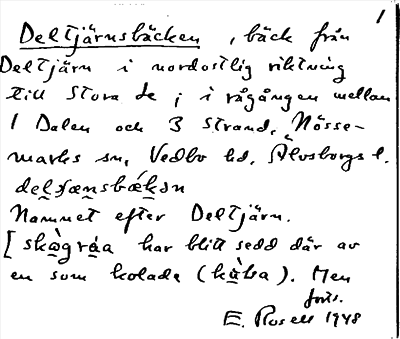 1
Deltjärnsbäcken, bäck från
Deltjärn i nordostlig riktning
till Stora Le; i rågången mellan
1 Dalen och 3 Strand, Nösse-
marks sn, Vedbo hd, Älvsborgs l.
Namnet efter Deltjärn.
[skògráa har blitt sedd där av
en som kolade (kàba). Men
forts.
E. Rosell 1948